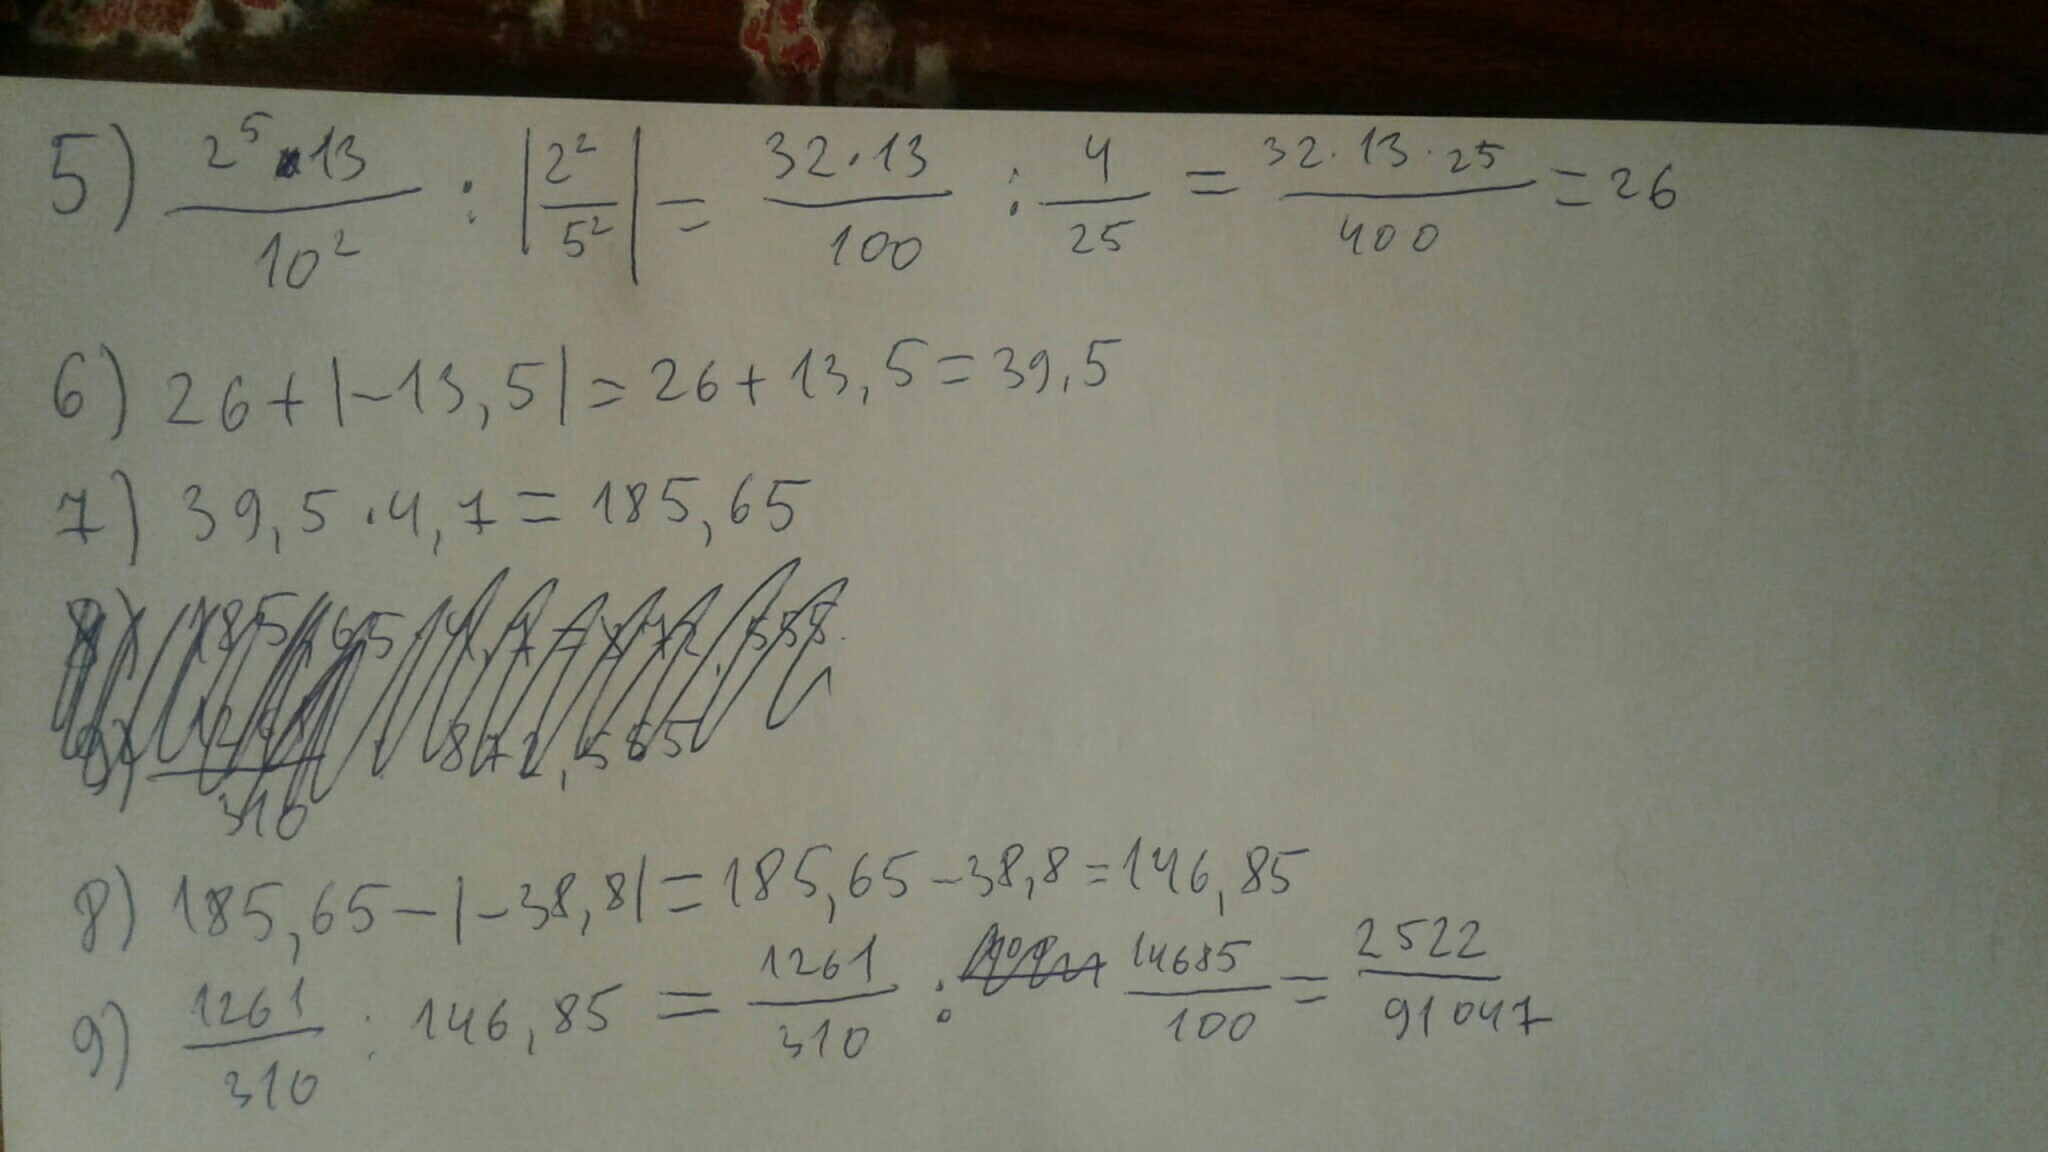 5) 2⁵·13/10² : |2²/5²| = 32·13/100 : 4/25 = 32·13·25/400 = 26
6) 26+|-13,5|=26+13,5=39,5
7) 39,5·4,7=185,65
8) 185,65-|-38,8|=185,65-38,8=146,85
9) 1261/310 : 146,85 = 1261/310 : 14685/100 = 2522/91047